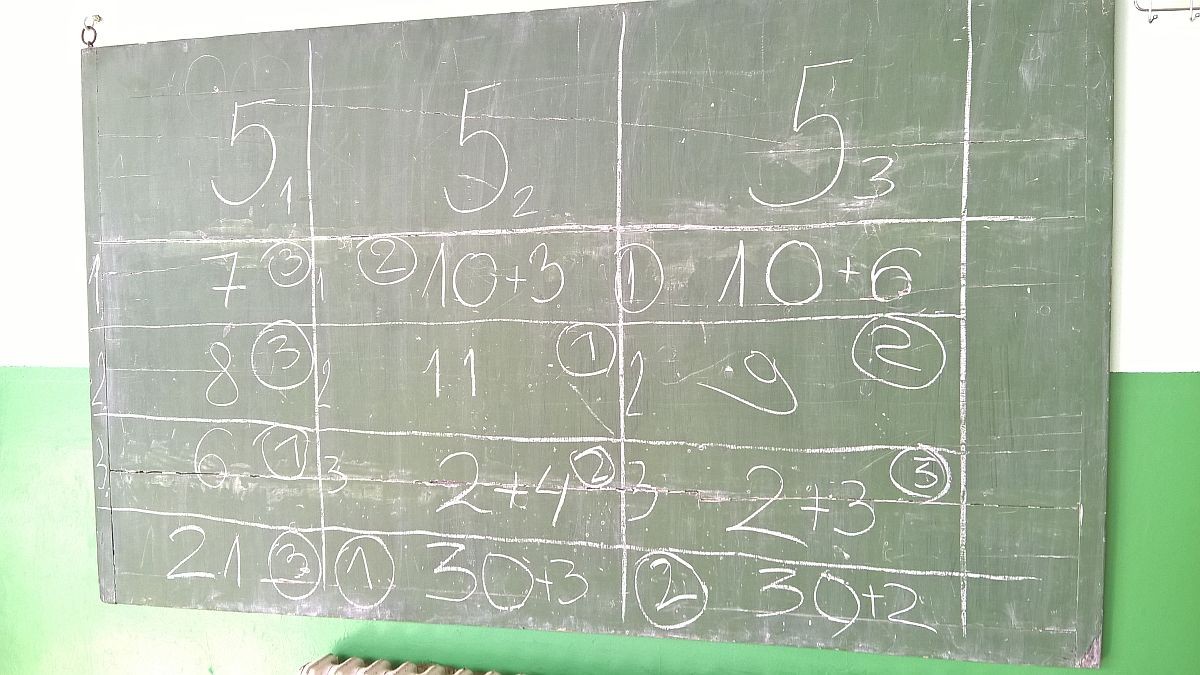 5₁ 5₂ 5₃
1 7 ③ 1 ② 10+3 ① 10+6
2 8 ③ 2 11 ① 2 9 ②
3 6 ① 3 2+4 ② 3 2+3 ③
21 ③ ① 30+3 ② 30+2